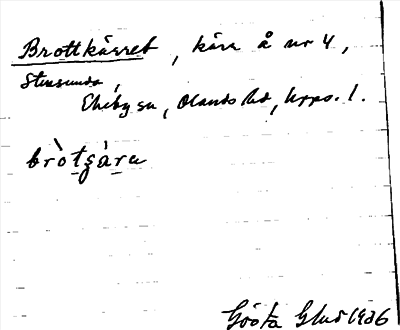 Brottkärret, kärr å nr 4,
Stensunda,
Ekeby sn, Olands hd, Upps. l.
bròtʒàrɐ
Gösta Glad 1936